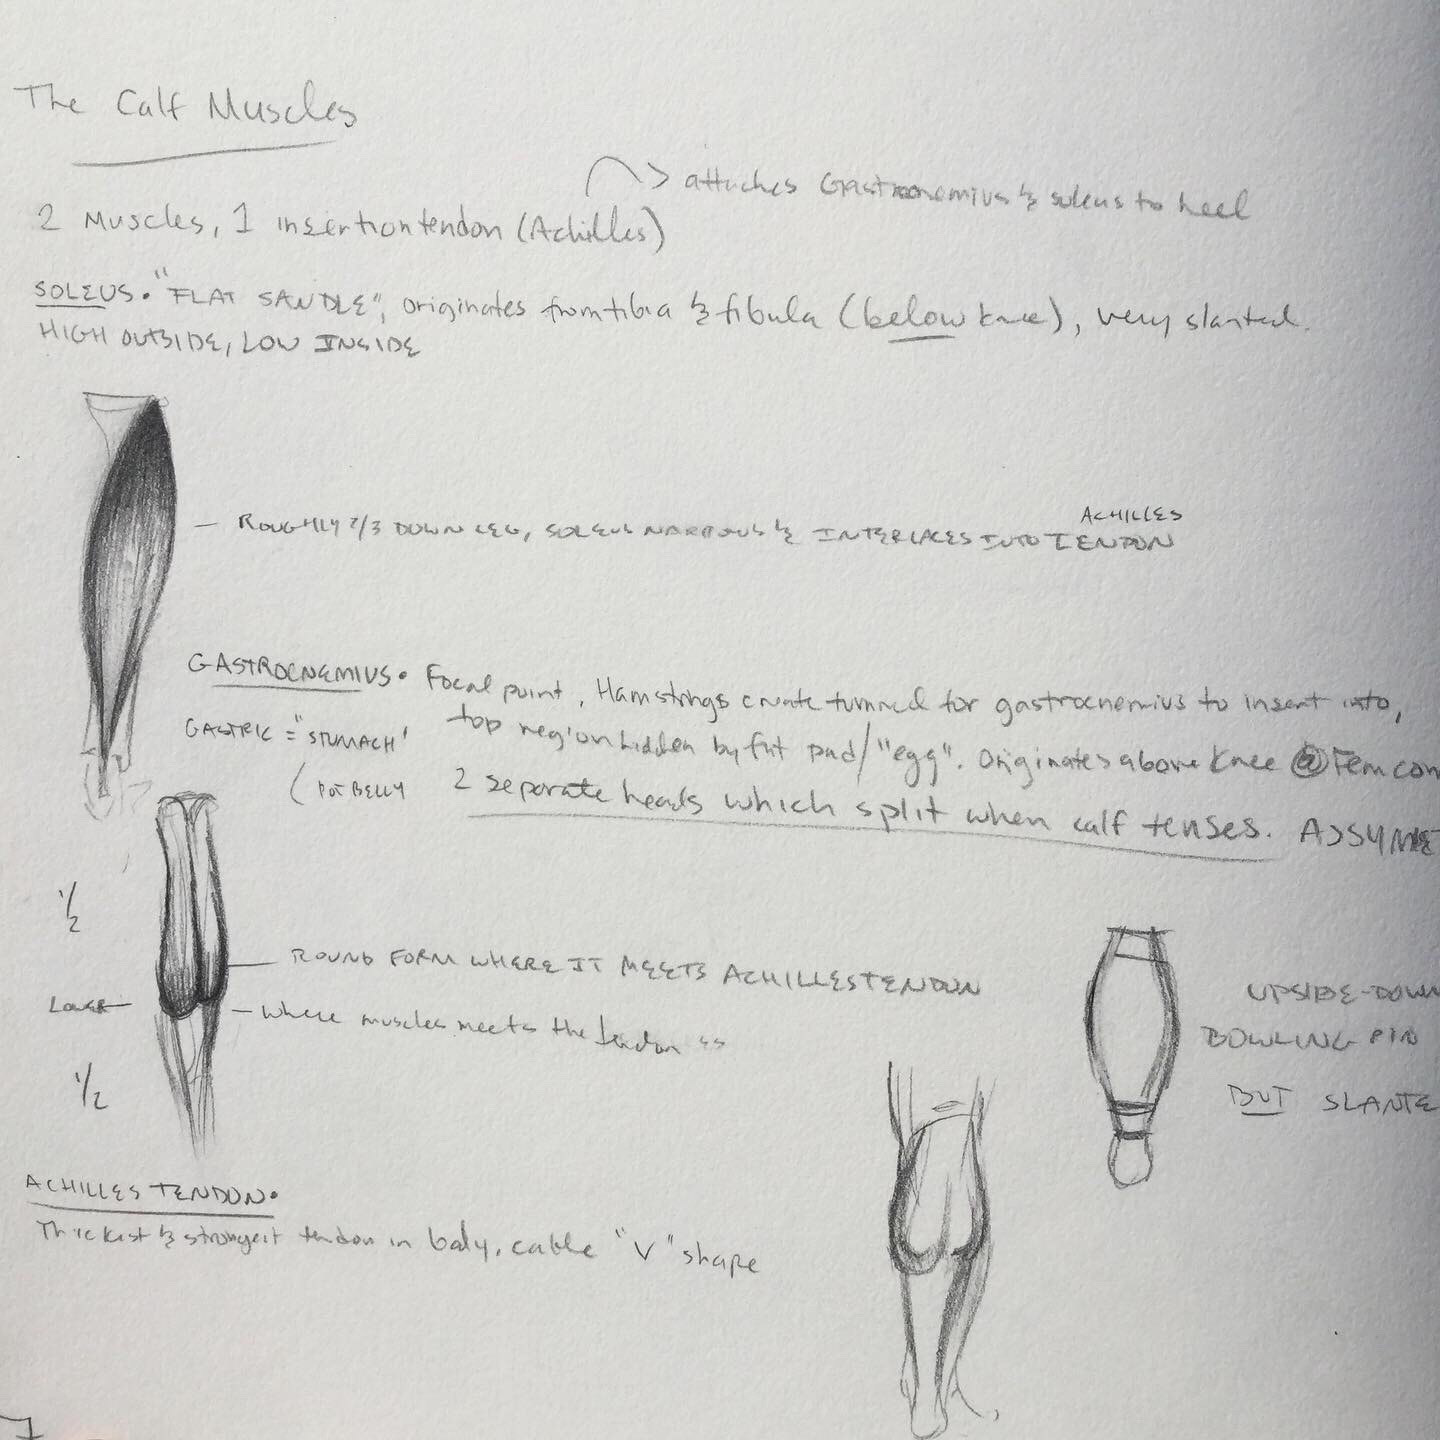 The Calf Muscles
> attaches Gastrocnemius & soleus to heel
2 Muscles, 1 insertion tendon (Achilles)
SOLEUS. "FLAT SANDLE", originates from tibia & fibula (below knee), very slanted.
HIGH OUTSIDE, LOW INSIDE
ACHILLES
– ROUGHLY 2/3 DOWN LEG, SOLEUS NARROWS & INTERLACES INTO TENDON
GASTROCNEMIUS. Focal point, Hamstrings create tunnel for gastrocnemius to insert into,
GASTRIC = "STUMACH' top region hidden by fat pad/"egg". Originates above Knee @ Fem con
(POT BELLY 2 separate heads which split when calf tenses. ASSYME
1/2
ROUND FORM WHERE IT MEETS ACHILLES TENDON
LOWER
– where muscles meets the tendon
1/2
UPSIDE-DOWN
BOWLING PIN
BUT SLANTE
ACHILLES TENDON.
Thickest & strongest tendon in body, cable "V" shape